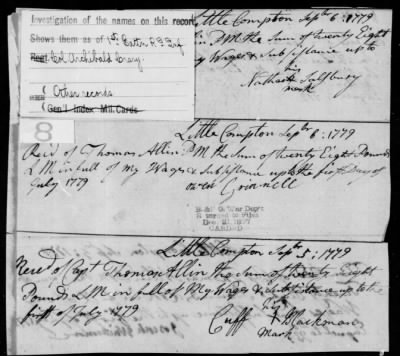 Investigation of the names on this record
Shows them as of 1st Estn R.I. Inf
Regt. Col. Archibald Crary.
Other records
Gen'l Index Mil. Cards
8
Little Compton Sepr 6: 1779
PM the Sum of twenty Eight
Wages & Subsistance up to
his
Nathaniel Salsbury
mark
Little Compton Sepr 6: 1779
Recd of Thomas Allin PM the Sum of twenty Eight Pounds
LM in full of my Wages & Subsistance up to the first Day of
July 1779
Cornell
R. & P. O. War Dep't
Returned to Files
1897
CARDED
Little Compton Sepr 5: 1779
Recd of Capt Thomas Allin the Sum of twenty Eight
Pounds LM in full of My Wages & Subsistance up to the
first of July 1779
his
Cuff X Blackman
Mark